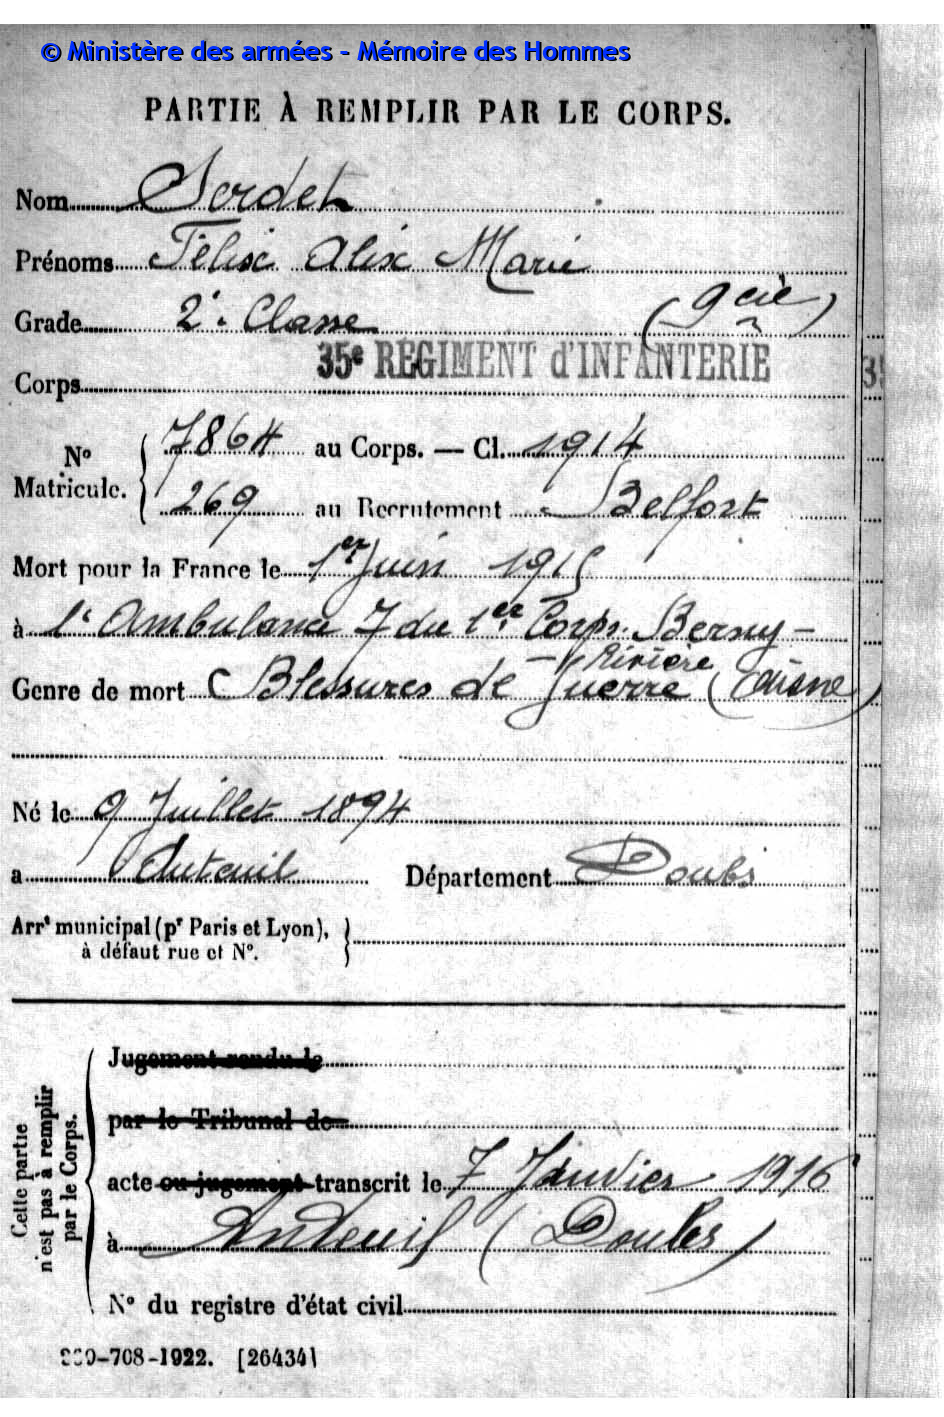 © Ministère des armées - Mémoire des Hommes
PARTIE À REMPLIR PAR LE CORPS.
Nom Serdet
Prénoms Félix Alix Marie
Grade 2e Classe (9 cie)
35e REGIMENT d'INFANTERIE
Corps
No Matricule. 7864 au Corps. — Cl. 1914
269 au Recrutement Belfort
Mort pour la France le 1er Juin 1915
à l'Ambulance 7 du 1er Corps Berny-
-Rivière
Genre de mort Blessures de Guerre (Aisne)
Né le 9 Juillet 1894
a Auteuil Département Doubs
Arrt municipal (pr Paris et Lyon),
à défaut rue et No.
Cette partie
n'est pas à remplir
par le Corps.
Jugement rendu le
par le Tribunal de
acte ou jugement transcrit le 7 Janvier 1916
à Auteuil (Doubs)
No du registre d'état civil
-708-1922. [26434]